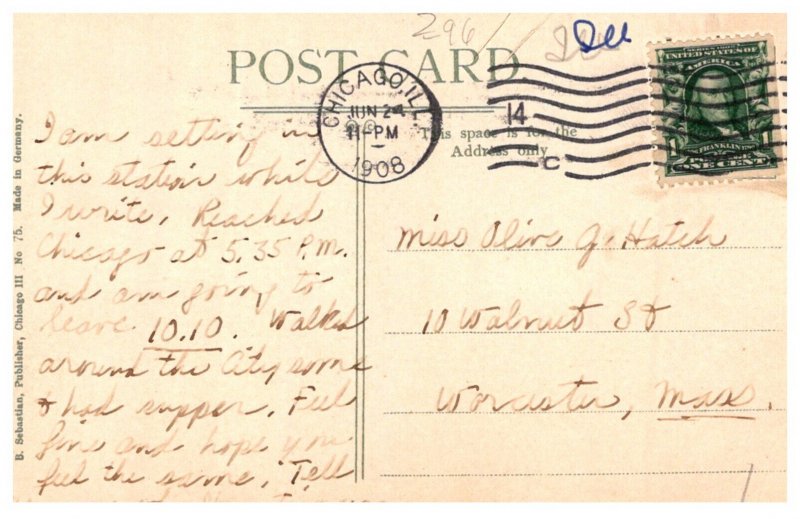 296
Ill
POST CARD
CHICAGO, ILL.
JUN 24
11-PM
1908
14
C
UNITED STATES OF
FRANKLIN
1 CENT
This space is for the
Address only
B. Sebastian, Publisher, Chicago Ill No 75. Made in Germany.
I am setting in
this station while
I write, Reached
Chicago at 5.35 P.M.
and am going to
leave 10.10. Walked
around the City some
& had supper. Feel
fine and hope you
feel the same, Tell
Miss Olive G. Hatch
10 Walnut St
Worcester, Mass.